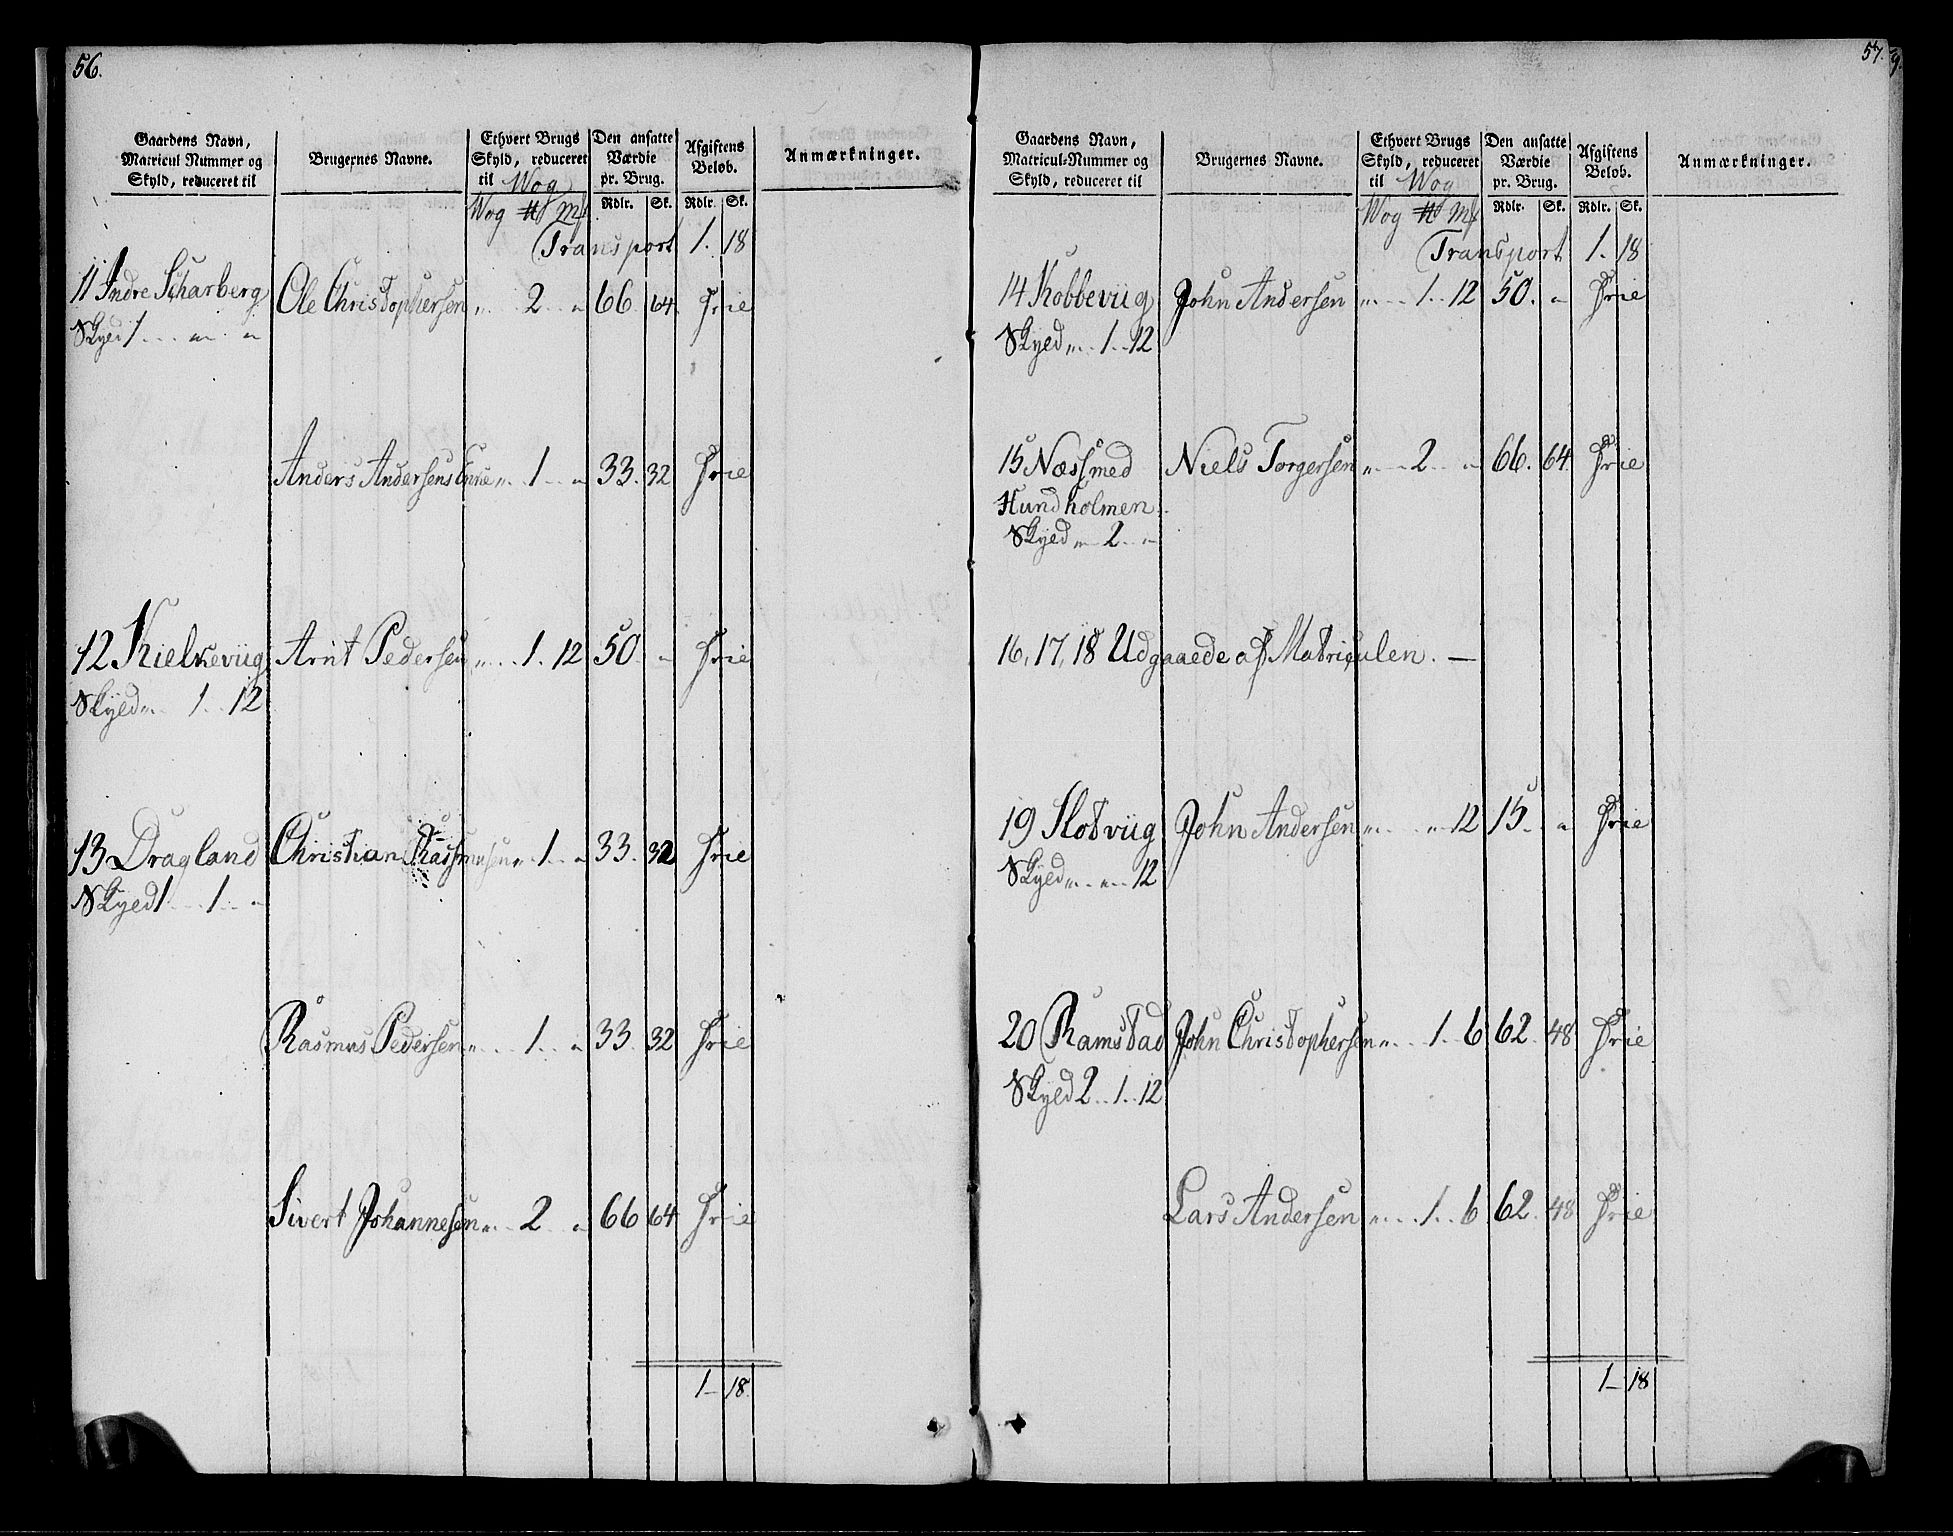 56.
Gaardens Navn, Matricul Nummer og Skyld, reduceret til
Brugernes Navne.
Ethvert Brugs Skyld, reduceret til Wog
Den ansatte Værdie pr. Brug.
Afgiftens Beløb.
Anmærkninger.
Wog ℔ Mf Rdlr. Sk. Rdlr. Sk.
Transport 1. 18
11 Indre Scharberg Ole Christophersen „ 2 „ 66 64 Frie
Skyld 1 „ „
Anders Andersens Enke „ 1 „ 33. 32 Frie
12 Kielkeviig Arnt Pedersen „ 1. 12 50 „ Frie
Skyld „ 1 12
13 Dragland Christian Rasmusen „ 1 „ 33. 32 Frie
Skyld 1 1 „
Rasmus Pedersen „ 1 „ 33 32 Frie
Sivert Johannesen „ 2 „ 66 64 Frie
1 – 18.
57.
Gaardens Navn, Matricul-Nummer og Skyld, reduceret til
Brugernes Navne.
Ethvert Brugs Skyld, reduceret til Wog
Den ansatte Værdie pr. Brug.
Afgiftens Beløb.
Anmærkninger.
Wog ℔ Mf Rdlr. Sk. Rdlr. Sk.
Transport 1. 18
14 Kobbeviig John Andersen „ 1 12 50. „ Frie
Skyld „ 1 12
15 Næss med Niels Torgersen „ 2 „ 66. 64 Frie
Hundholmen
Skyld „ 2 „
16, 17, 18 Udgaaede af Matriculen. —
19 Slotviig John Andersen „ „ 12 15 „ Frie
Skyld „ „ 12
20 Ramstad John Christophersen „ 1 6 62 48 Frie
Skyld 2 1 12
Lars Andersen „ 1 6 62 48 Frie
1 – 18